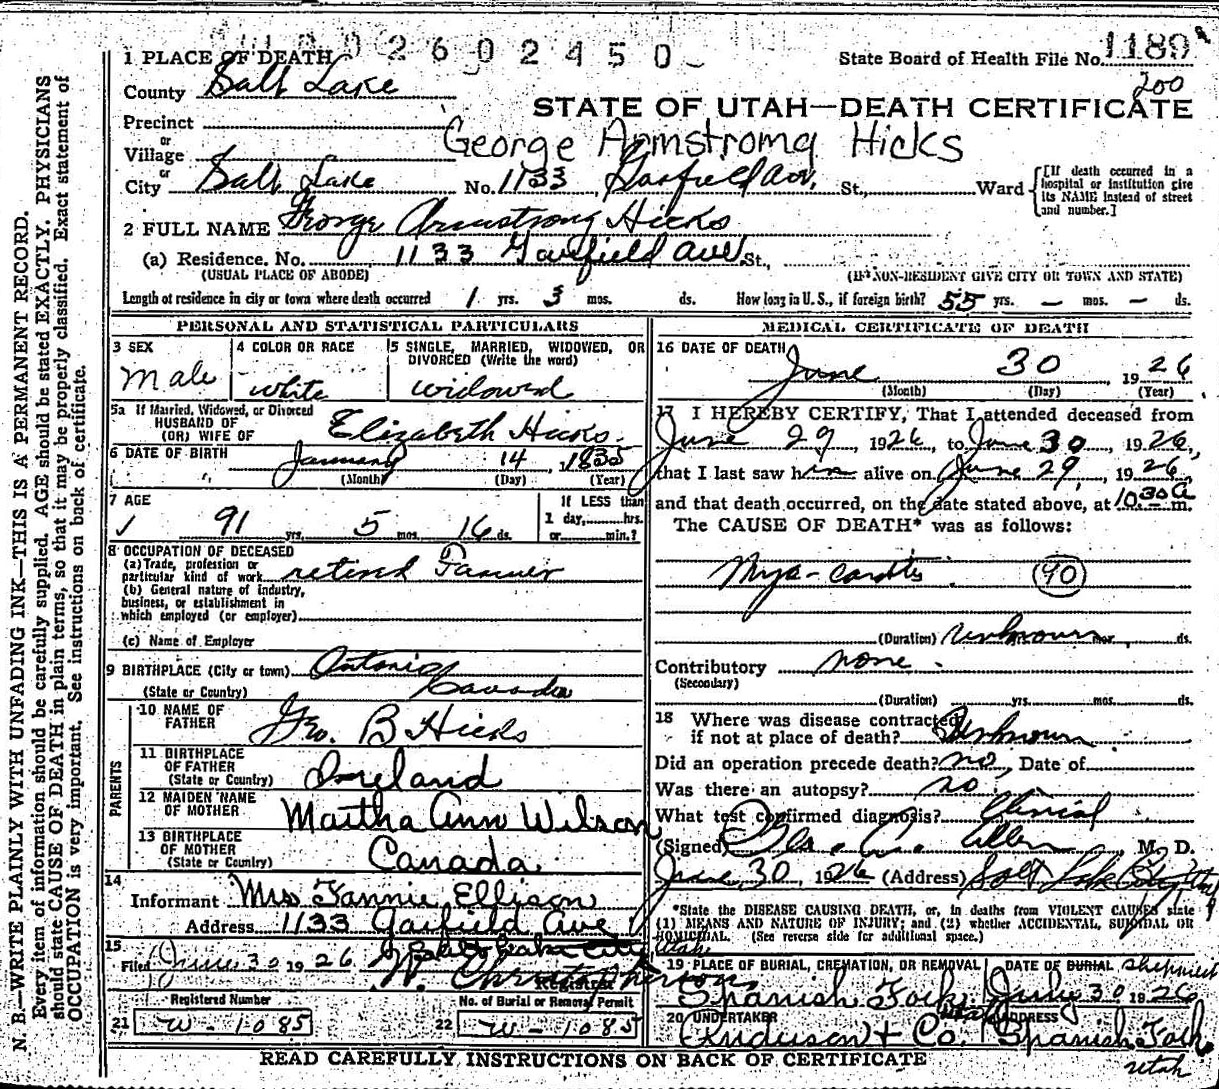 2602450
1 PLACE OF DEATH
State Board of Health File No. 1189
County Salt Lake
200
STATE OF UTAH—DEATH CERTIFICATE
Precinct
George Armstromg Hicks
or
Village
or
City Salt Lake No. 1133 Garfield Av. St., Ward
[If death occurred in a hospital or institution give its NAME instead of street and number.]
2 FULL NAME George Armstrong Hicks
(a) Residence. No. 1133 Garfield Ave St.,
(USUAL PLACE OF ABODE) (IF NON-RESIDENT GIVE CITY OR TOWN AND STATE)
Length of residence in city or town where death occurred 1 yrs. 3 mos. ds. How long in U.S., if foreign birth? 55 yrs. — mos. — ds.
PERSONAL AND STATISTICAL PARTICULARS
3 SEX
Male
4 COLOR OR RACE
white
5 SINGLE, MARRIED, WIDOWED, OR
DIVORCED (Write the word)
widowed
5a If Married, Widowed, or Divorced
HUSBAND OF
(OR) WIFE OF Elizabeth Hicks.
6 DATE OF BIRTH January 14, 1835
(Month) (Day) (Year)
7 AGE
91 yrs. 5 mos. 16 ds.
If LESS than
1 day, hrs.
or min.?
8 OCCUPATION OF DECEASED
(a) Trade, profession or
particular kind of work retired Farmer
(b) General nature of industry,
business, or establishment in
which employed (or employer)
(c) Name of Employer
9 BIRTHPLACE (City or town) Ontario
(State or Country) Canada
PARENTS
10 NAME OF
FATHER Geo. B Hicks
11 BIRTHPLACE
OF FATHER
(State or Country) Ireland
12 MAIDEN NAME
OF MOTHER Martha Ann Wilson
13 BIRTHPLACE
OF MOTHER
(State or Country) Canada
14
Informant Mrs Fannie Ellison
Address 1133 Garfield Ave
Salt Lake City Utah
15
Filed June 30 1926
Registrar
Registered Number
21 W-1085
No. of Burial or Removal Permit
22 W-1085
MEDICAL CERTIFICATE OF DEATH
16 DATE OF DEATH
June 30, 1926
(Month) (Day) (Year)
17 I HEREBY CERTIFY, That I attended deceased from
June 29 1926, to June 30, 1926,
that I last saw him alive on June 29, 1926,
and that death occurred, on the date stated above, at 10 30 A m.
The CAUSE OF DEATH* was as follows:
Myo-carditis. 90
(Duration) unknown mos. ds.
Contributory none.
(Secondary)
(Duration) yrs. mos. ds.
18 Where was disease contracted
if not at place of death? Unknown
Did an operation precede death? no, Date of
Was there an autopsy? no
What test confirmed diagnosis? Clinical
(Signed) Allen, M. D.
June 30, 1926 (Address) Salt Lake City
*State the DISEASE CAUSING DEATH, or, in deaths from VIOLENT CAUSES state
(1) MEANS AND NATURE OF INJURY; and (2) whether ACCIDENTAL, SUICIDAL OR
HOMICIDAL. (See reverse side for additional space.)
19 PLACE OF BURIAL, CREMATION, OR REMOVAL
Spanish Fork Utah
DATE OF BURIAL shipment
July 30 1926
20 UNDERTAKER
Anderson & Co.
ADDRESS
Spanish Fork
Utah
READ CAREFULLY INSTRUCTIONS ON BACK OF CERTIFICATE
N. B.—WRITE PLAINLY WITH UNFADING INK—THIS IS A PERMANENT RECORD.
Every item of information should be carefully supplied. AGE should be stated EXACTLY. PHYSICIANS
should state CAUSE OF DEATH in plain terms, so that it may be properly classified. Exact statement of
OCCUPATION is very important. See instructions on back of certificate.